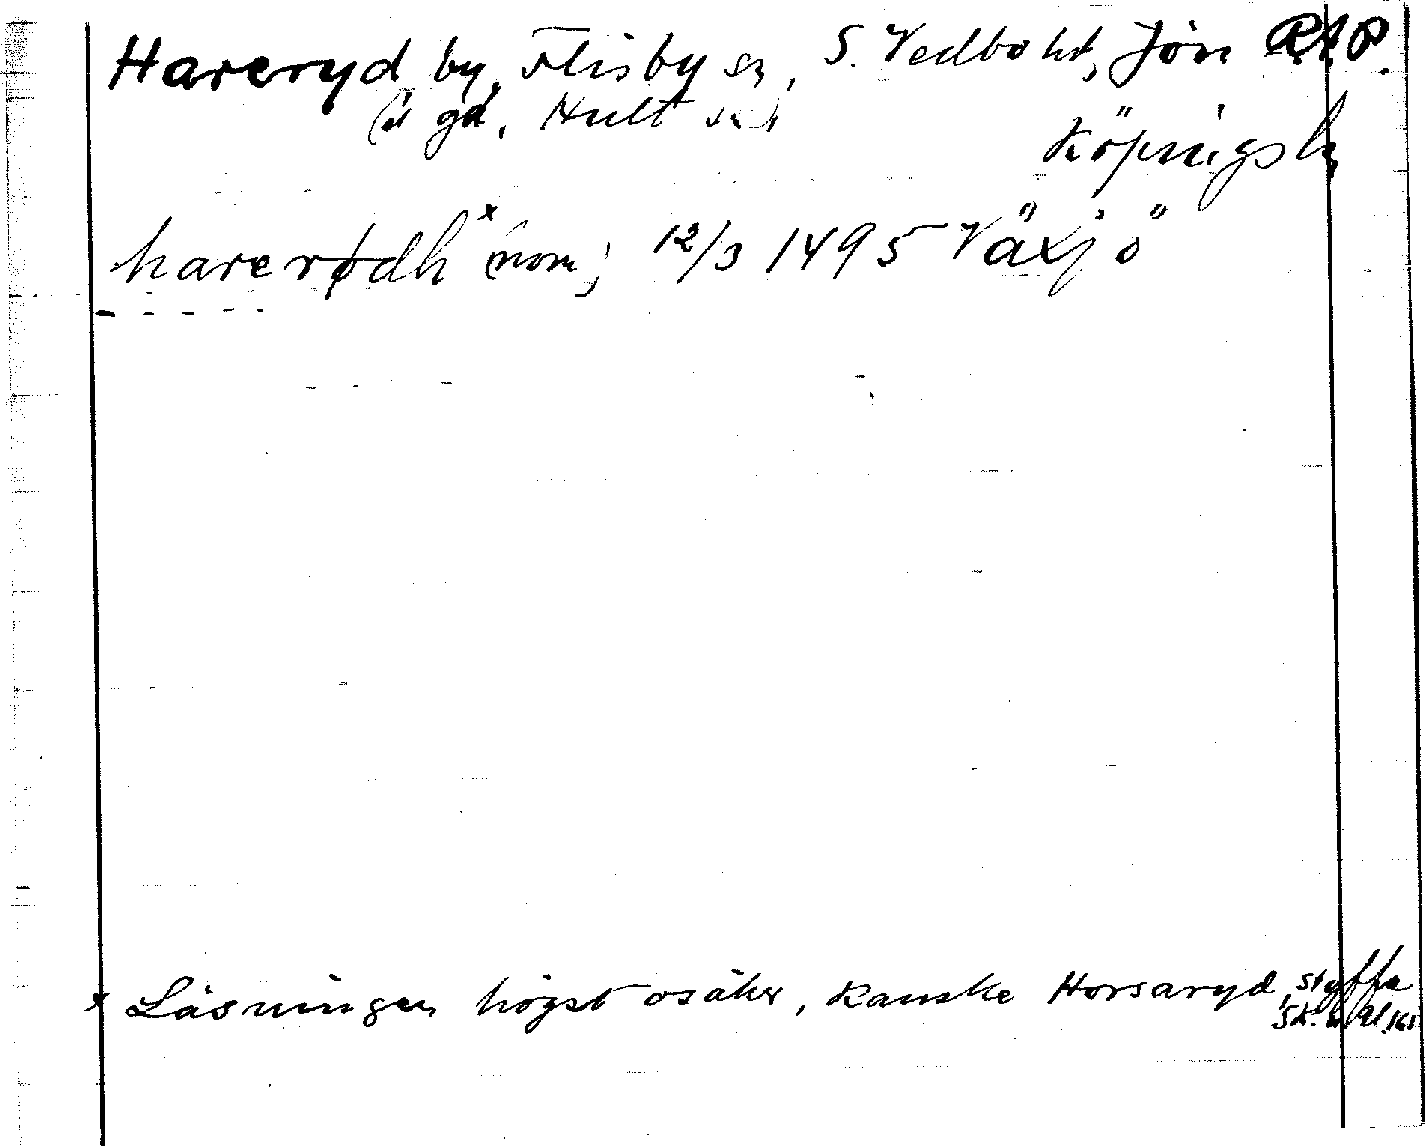 Hareryd by, Flisby sn, S. Vedbo hd, Jön RAP.
gd, Hult sn
Köpingsbr
harerødh x (nom); 12/3 1495 Växjö
x Läsningen högst osäker, kanske Horsaryd, Styffe
Sk. u. 161